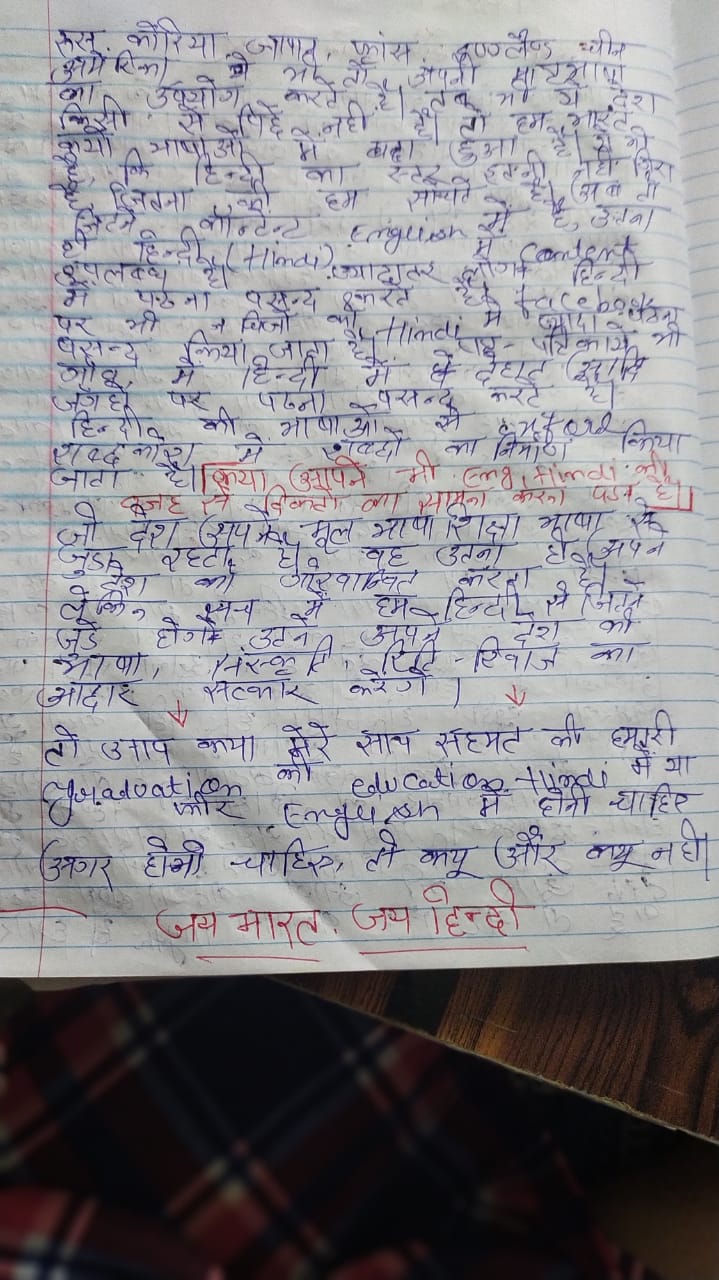 रूस, कोरिया जापान, फ्रांस इण्गलैण्ड चीन
अमेरिका ये भी तो अपनी मातृभाषा
का उपयोग करते है। तब भी ये देश
किसी से पिछे नही है। तो हम भारत
क्या भाषाओ में बधा हुआ है। ये भी
है, कि हिन्दी का स्टर इतनी नही गिरा
है जितना की हम सोचते है। अब तो
जितने कॉन्टेन्ट Engilish में है, उतना
ही हिन्दी (Hindi) में Content
उपलब्ध है। ज्यादातर लोग हिन्दी
में पढना पसन्द करते है। facebook
पर भी चिजो को Hindi में ज्यादा पढना
पसन्द किया जाता है। पत्र-पत्रिकाये भी
गॉव, में हिन्दी में देहात इत्यादि
जगहो पर पढना पसन्द करते है।
हिन्दी की भाषाओ से oxford
शब्दकोश में शब्दो का निर्माण किया
जाता है। क्या आपने भी Eng Hindi की
वजह से दिकतो का सामना करना पडता है।
जो देश अपने मूल भाषा शिक्षा भाषा से
जुडा रहता है वह उतना ही अपने
देश को गौरवान्वित करता है।
लेकिन सच में हम हिन्दी से जितने
जुडे होगे उतने अपने देश की
भाषा, संस्कृति, रिति-रिवाज का
आदार सत्कार करेगे।
तो आप क्या मेरे साथ सहमत की हमारी
की education Hindi में या
फीर Engilish में होनी चाहिए
अगर होनी चाहिए, तो क्यू और क्यू नही।
जय भारत. जय हिन्दी